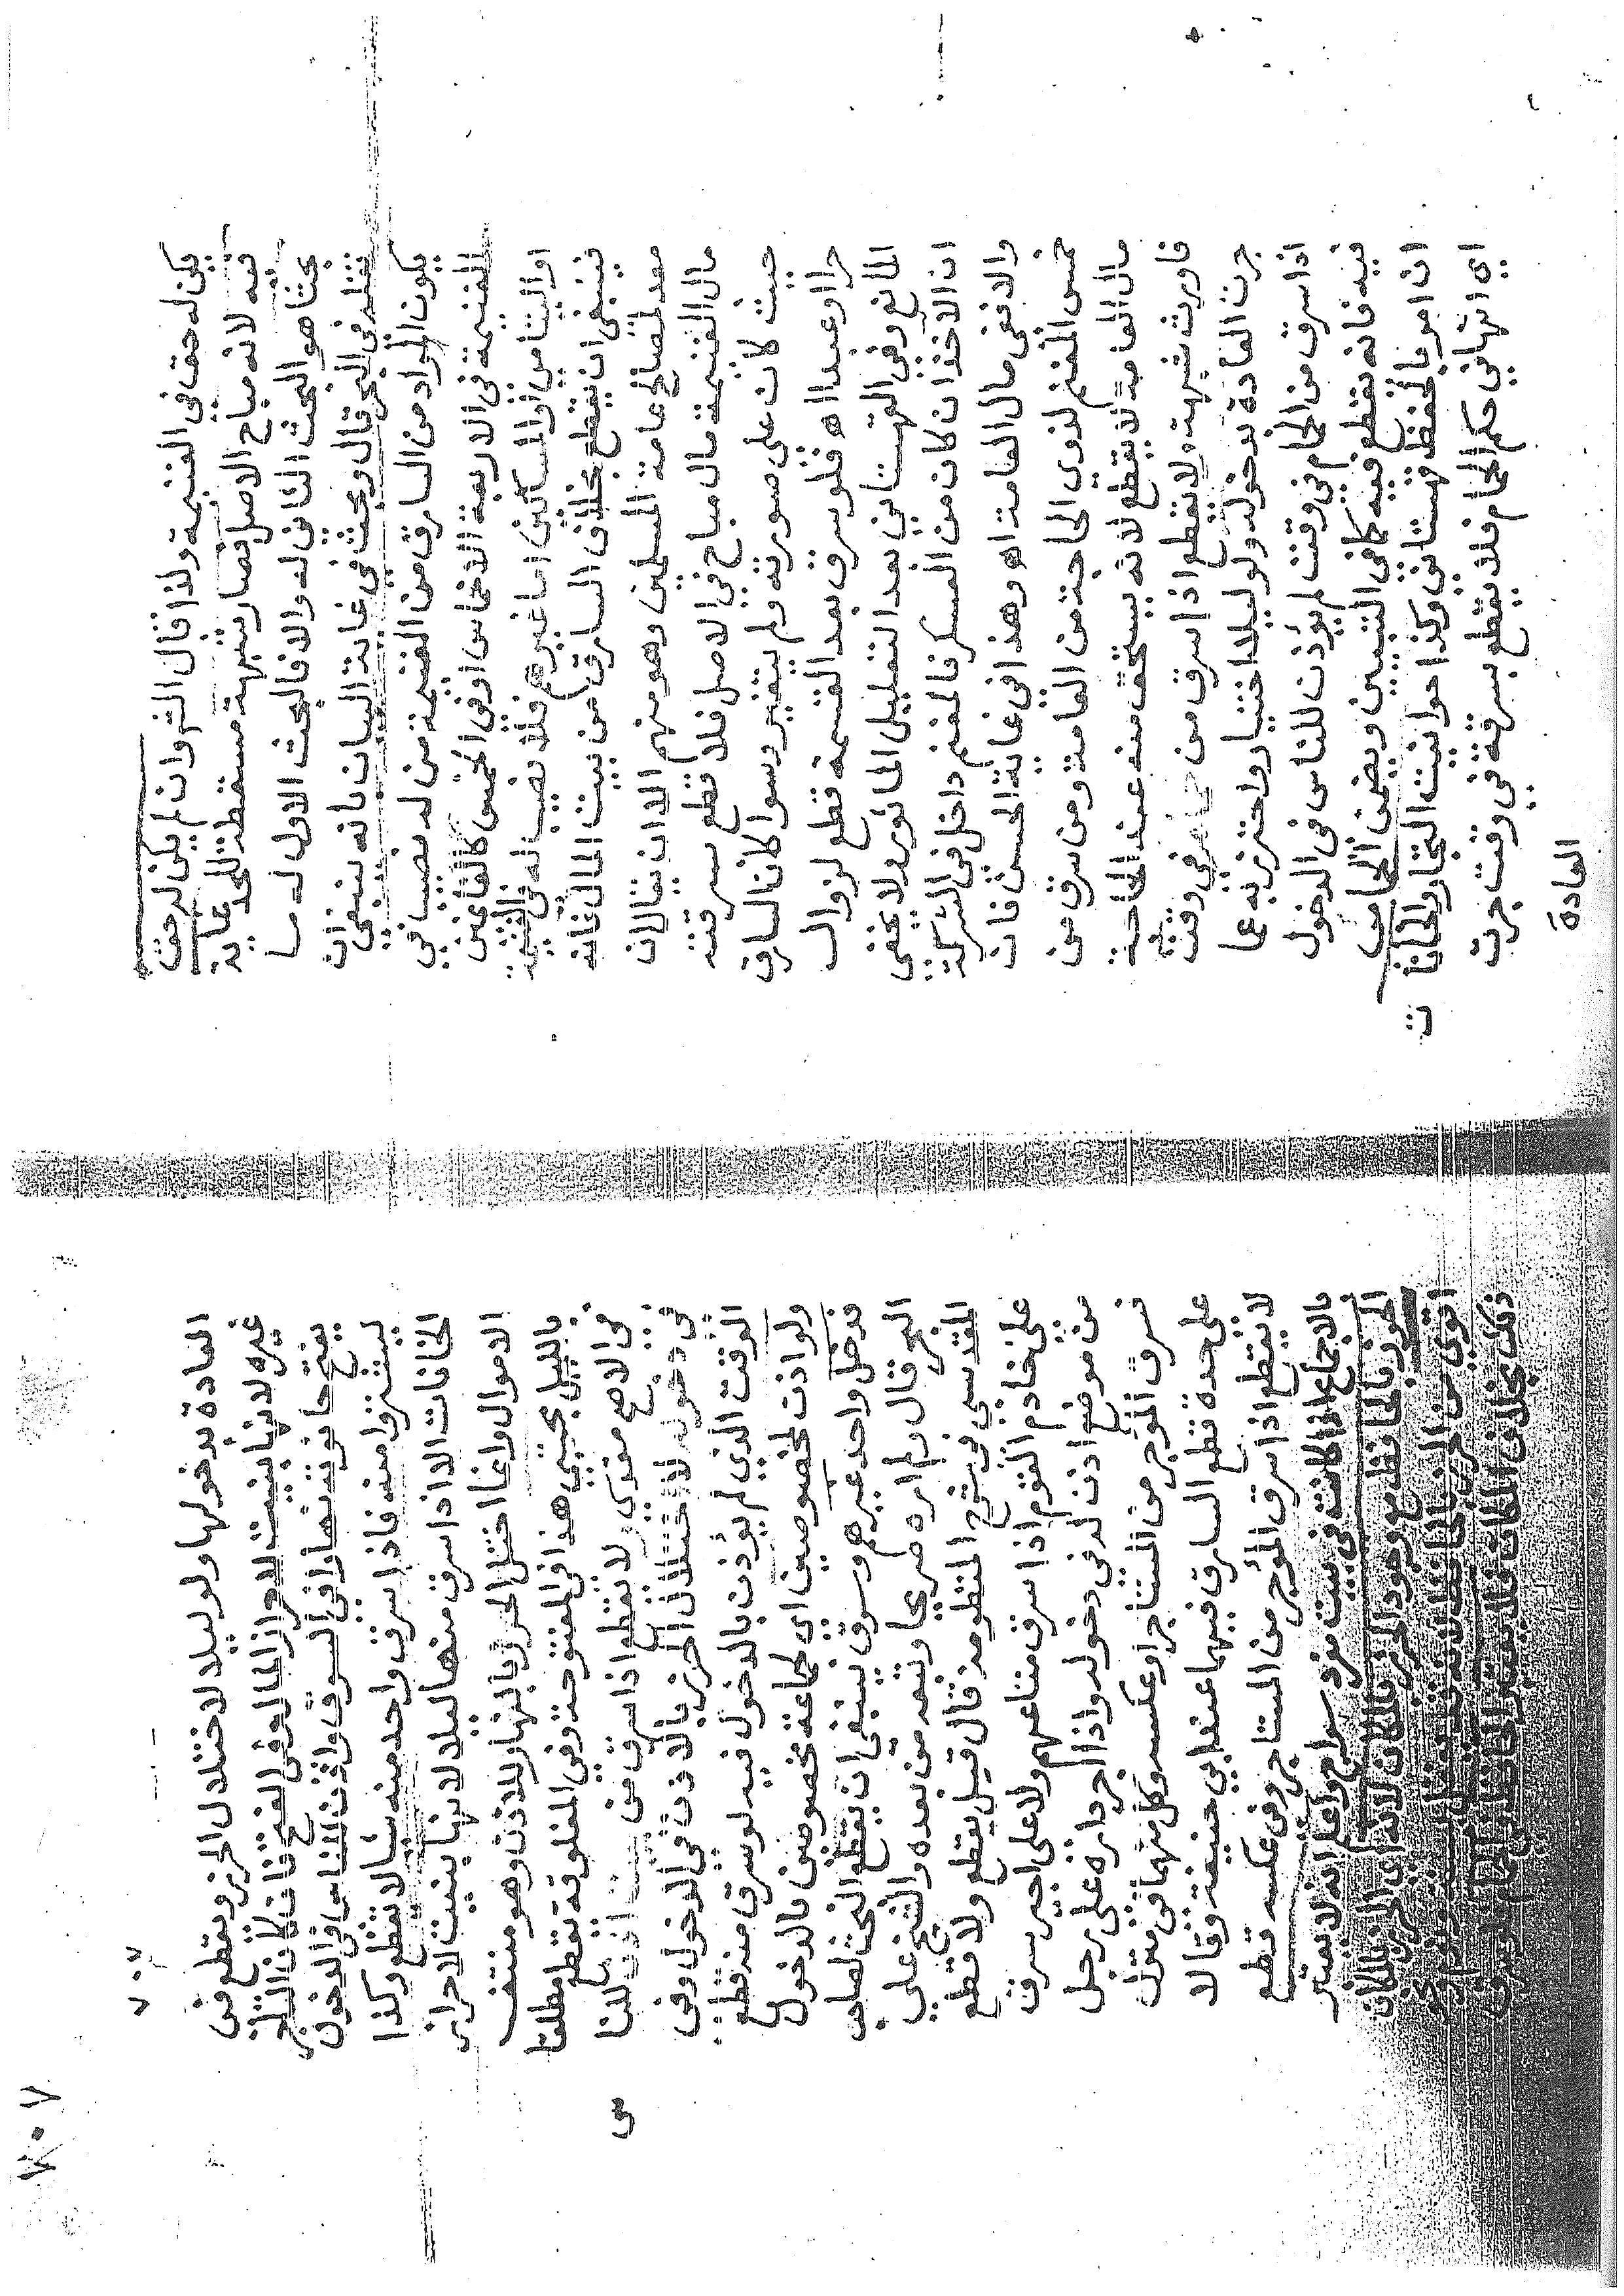 يكن له حق في الغنيمة ولذا قال الشر وان لم يكن له حق
فيه لانه مباح الاصل فصار شبهة مسقطة للحد غاية
بحثا هو البحث الثاني له والا فالبحث الاول له ما
نقله في البحر قال وبحث في غاية البيان بانه ينبغي ان
يكون المراد من السارق من الغنيمة من له نصيب في
الغنيمة في الاربعة الاخماس او في الخمس كالغانمين
او اليتامى والمساكين اما غيرهم فلا نصيب له في الغنيمة
فينبغي ان يقطع بخلاف السارق من بيت المال فانه
معد لمصالح عامة المسلمين وهو منهم الا ان يقال ان
مال الغنيمة مال مباح في الاصل فلا قطع سرقته
حيث كان على صورته ولم يتغير وسوا كان السارق
حرا او عبدا اه فلو سرق بعد القسمة قطع لزوال
المانع وفي القهستاني بعد التعليل بالماثور ولا يخفى
ان الاخذ ان كان من العسكر فالمغنم داخل في الشركة
والا ففي مال العامة اه وهذا في غاية الحسن فان
خمس المغنم لذوي الحاجة من العامة ومن سرق من
مال العامة لا يقطع لانه يستحق منه عند الحاجة
فاورث شبهة ولا يقطع اذا سرق من حمام في وقت
جرت العادة بدخوله ولو ليلا اختيار واحترز به عما
اذا سرق من الحمام في وقت لم يؤذن للناس في الدخول
فيه فانه يقطع فيه كما في التبيين ويضمن الحمامي
ان امر بالحفظ قهستاني وكذا حوانيت التجار والخانات
اي انها في حكم الحمام فلا يقطع بسرقة في وقت جرت
العادة
٧٠٧
العادة بدخولها ولو ليلا لاختلال الحرز ويقطع في
غيره لانها بنيت لاحراز المال وفي الفتح فان كان التاجر
يفتح حانوته نهارا في السوق واذن للناس في الدخول
ليشتروا منه فاذا سرق واحد منه شيا لا يقطع وكذا
الخانات الا اذا سرق منها ليلا لانها بنيت لاحراز
الاموال وانما اختل الحرز بالنهار للاذن وهو منتف
بالليل مجتبى هذا في المفتوحة وفي المغلوقة يقطع مطلقا
في الاصح مقدسي ولا يقطع اذا سرق من بيت اذن للناس
في دخوله لاختلال الحرز بالاذن في الدخول وفي
الوقت الذي لم يؤذن بالدخول فيه لو سرق منه قطع
ولو اذن لمخصوصين اي لجماعة مخصوصين بالدخول
فدخل واحد غيرهم وسرق ينبغي ان يقطع البحث لصاحب
البحر قال ولم اره صريحا وتبعه من بعده والشيخ علي
المقدسي في شرح المنظومة قال قيل يقطع ولا قطع
على خادم القوم اذا سرق متاعهم ولا على اجير سرق
من موضع اذن له في دخوله واذا اجر داره على رجل
فسرق المؤجر من المستاجر او عكسه وكل منهما في منزل
على حدة قطع السارق فيهما عند ابي حنيفة وقالا
لا يقطع اذا سرق المؤجر من المستاجر وفي عكسه قطع
بالاجماع اذا كانت في بيت مفرد سراج واعلم انه لا يعتبر
الحرز بالحافظ مع وجود الحرز بالمكان لانه اي الحرز بالمكان
اقوى من الحرز بالحافظ لانه
ذلك بخلاف المكان فلا يعتبر الحافظ في الحمام لو سرق